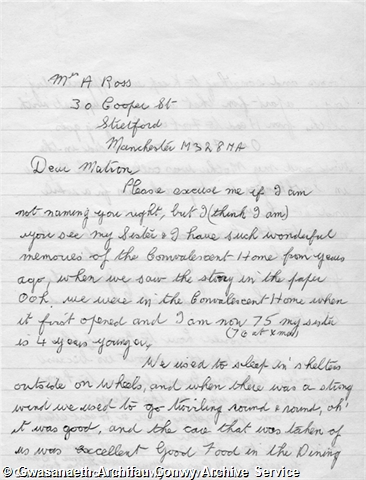 Mrs A Ross
30 Cooper St
Stretford
Manchester M32 8HA
Dear Matron
Please excuse me if I am
not naming you right, but I (think I am)
you see my Sister & I have such wonderful
memories of the Convalescent Home from years
ago, when we saw the story in the paper
Ooh, we were in the Convalescent Home when
it first opened and I am now 75 my sister
(76 at Xmas)
is 4 years younger,
We used to sleep in shelters
outside on wheels, and when there was a strong
wind we used to go twirling round & round, oh'
it was good, and the care that was taken of
us was excellent Good Food in the Dining
© Gwasanaeth Archifau Conwy Archive Service